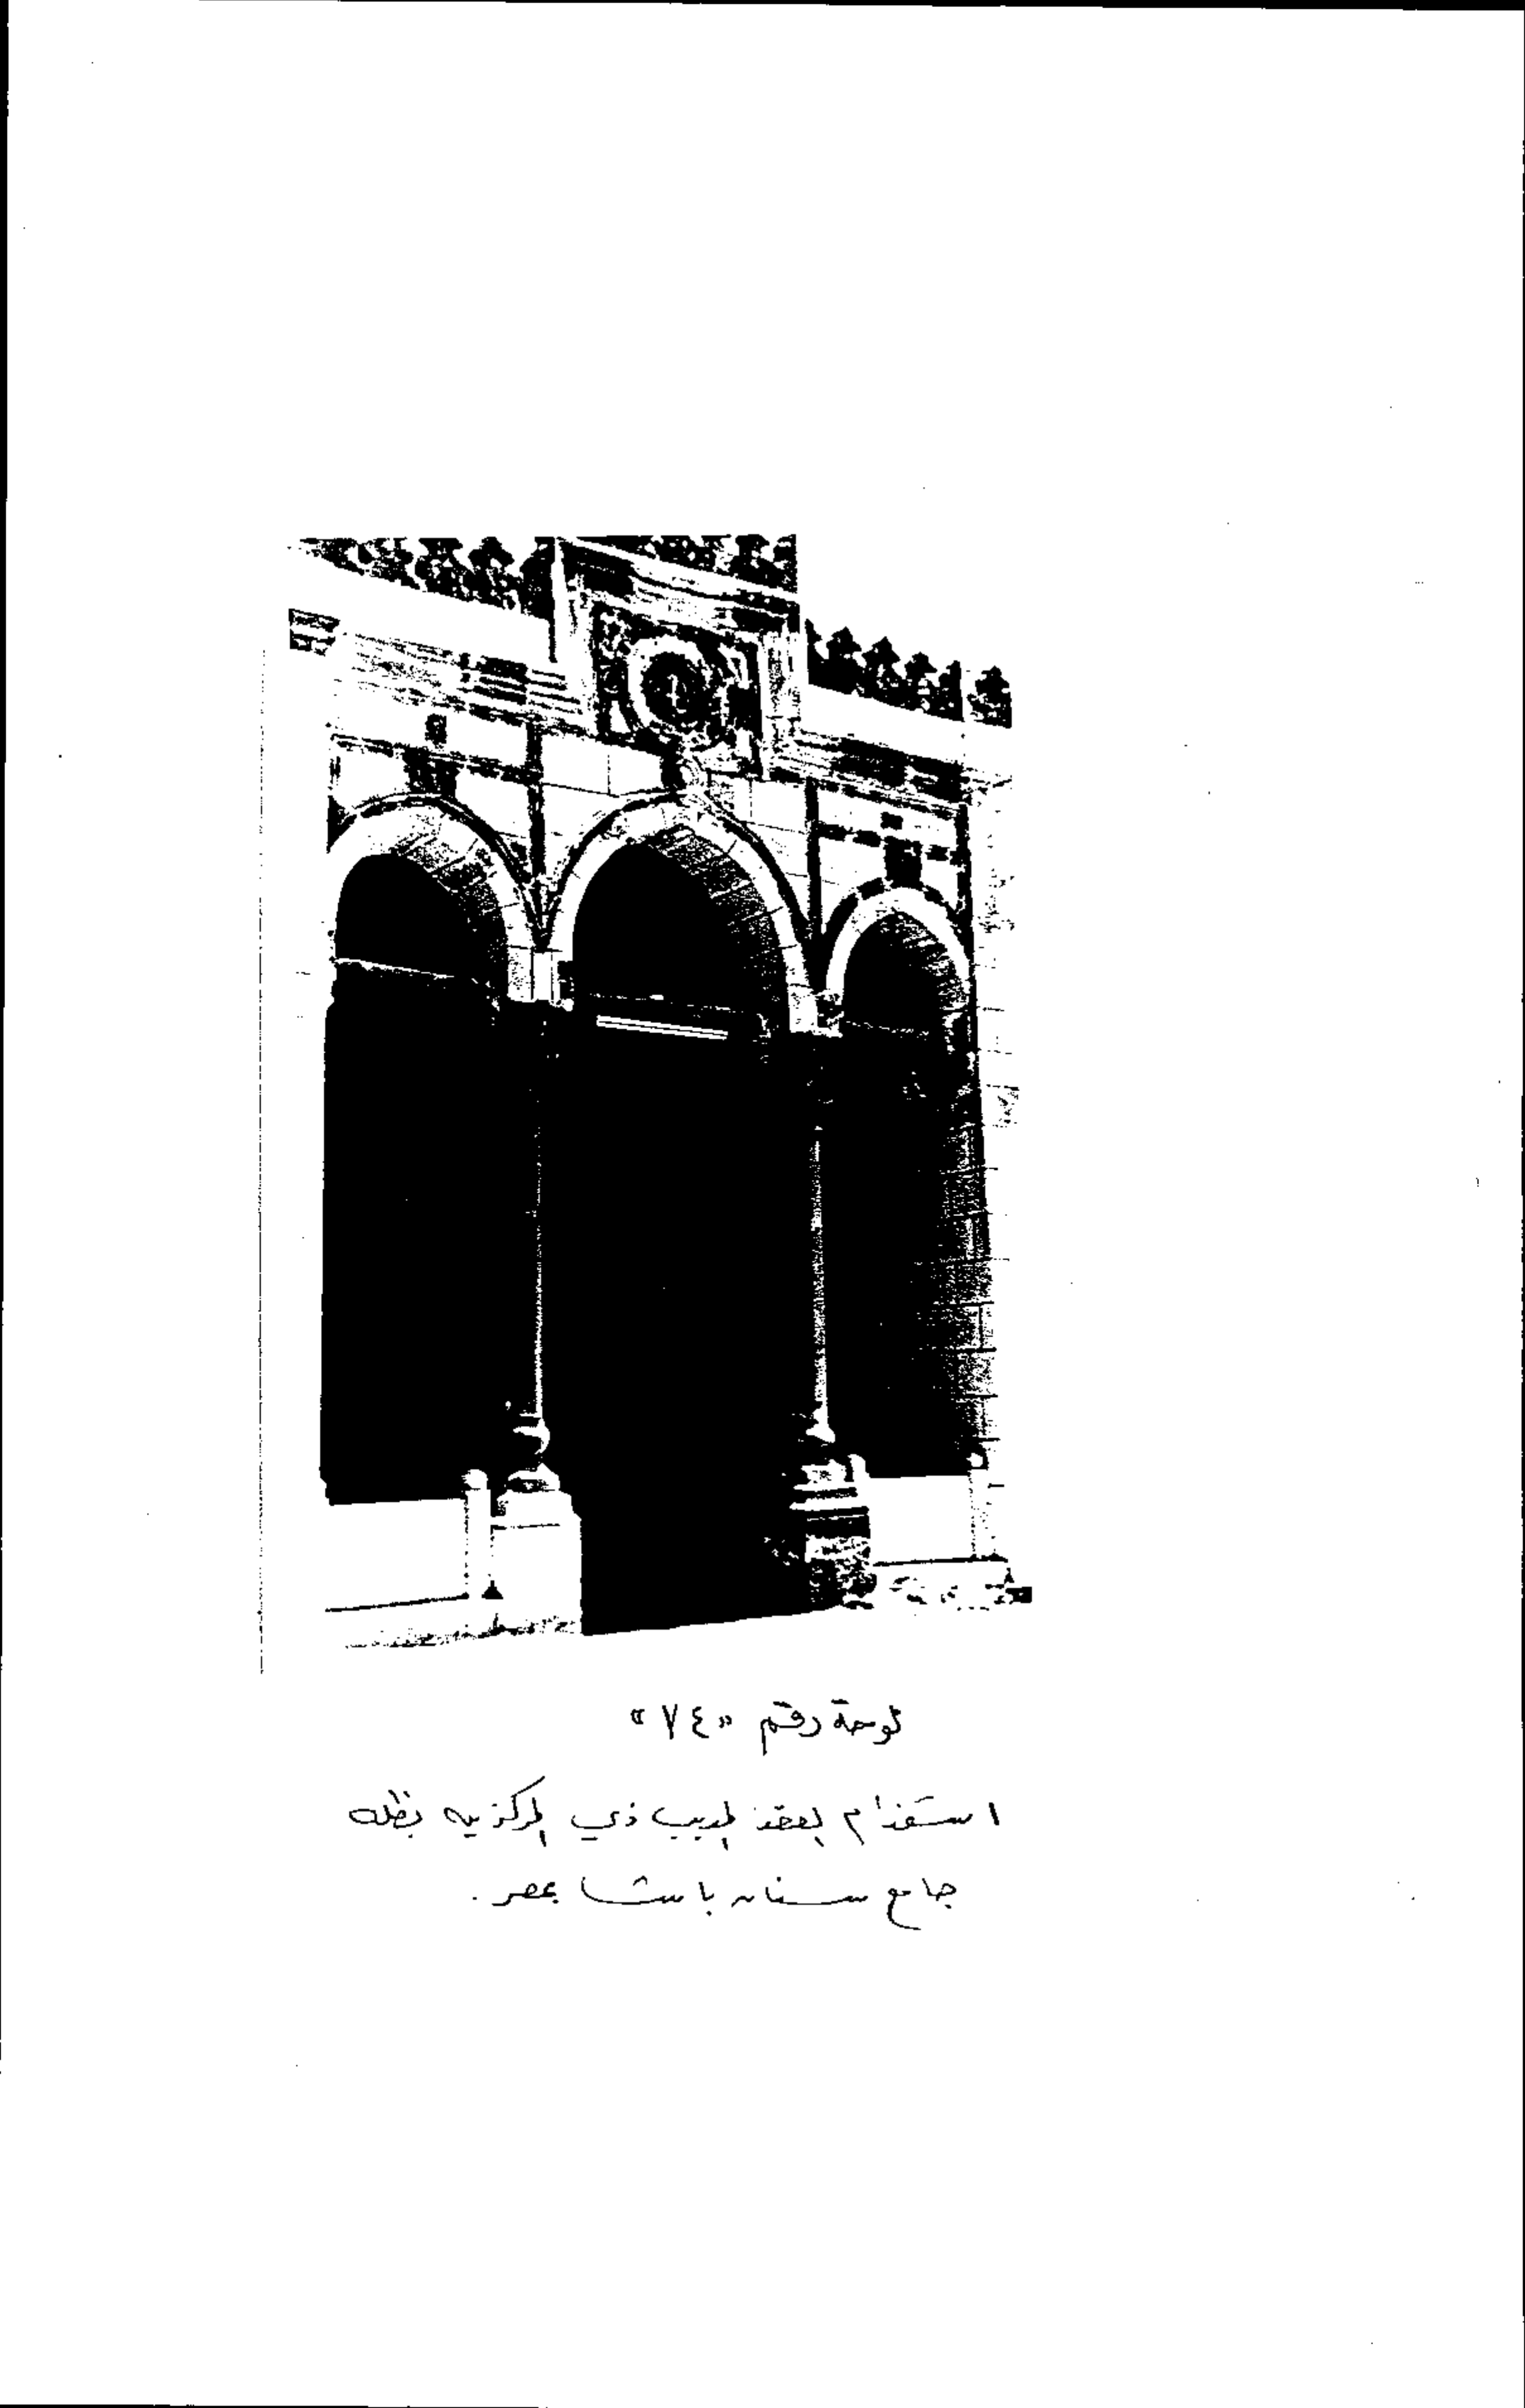 لوحة رقم «٧٤»
استخدام العقد المدبب ذي المركزين بظلة
جامع سنان باشا بمصر.